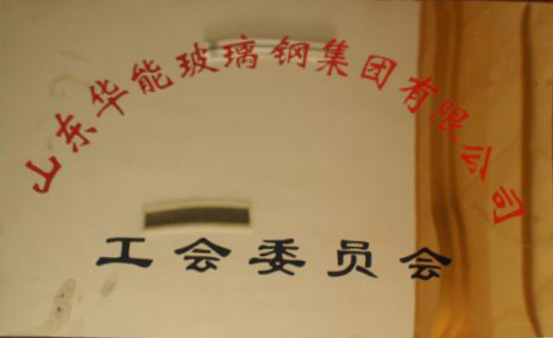 山东华能玻璃钢集团有限公司
工会委员会